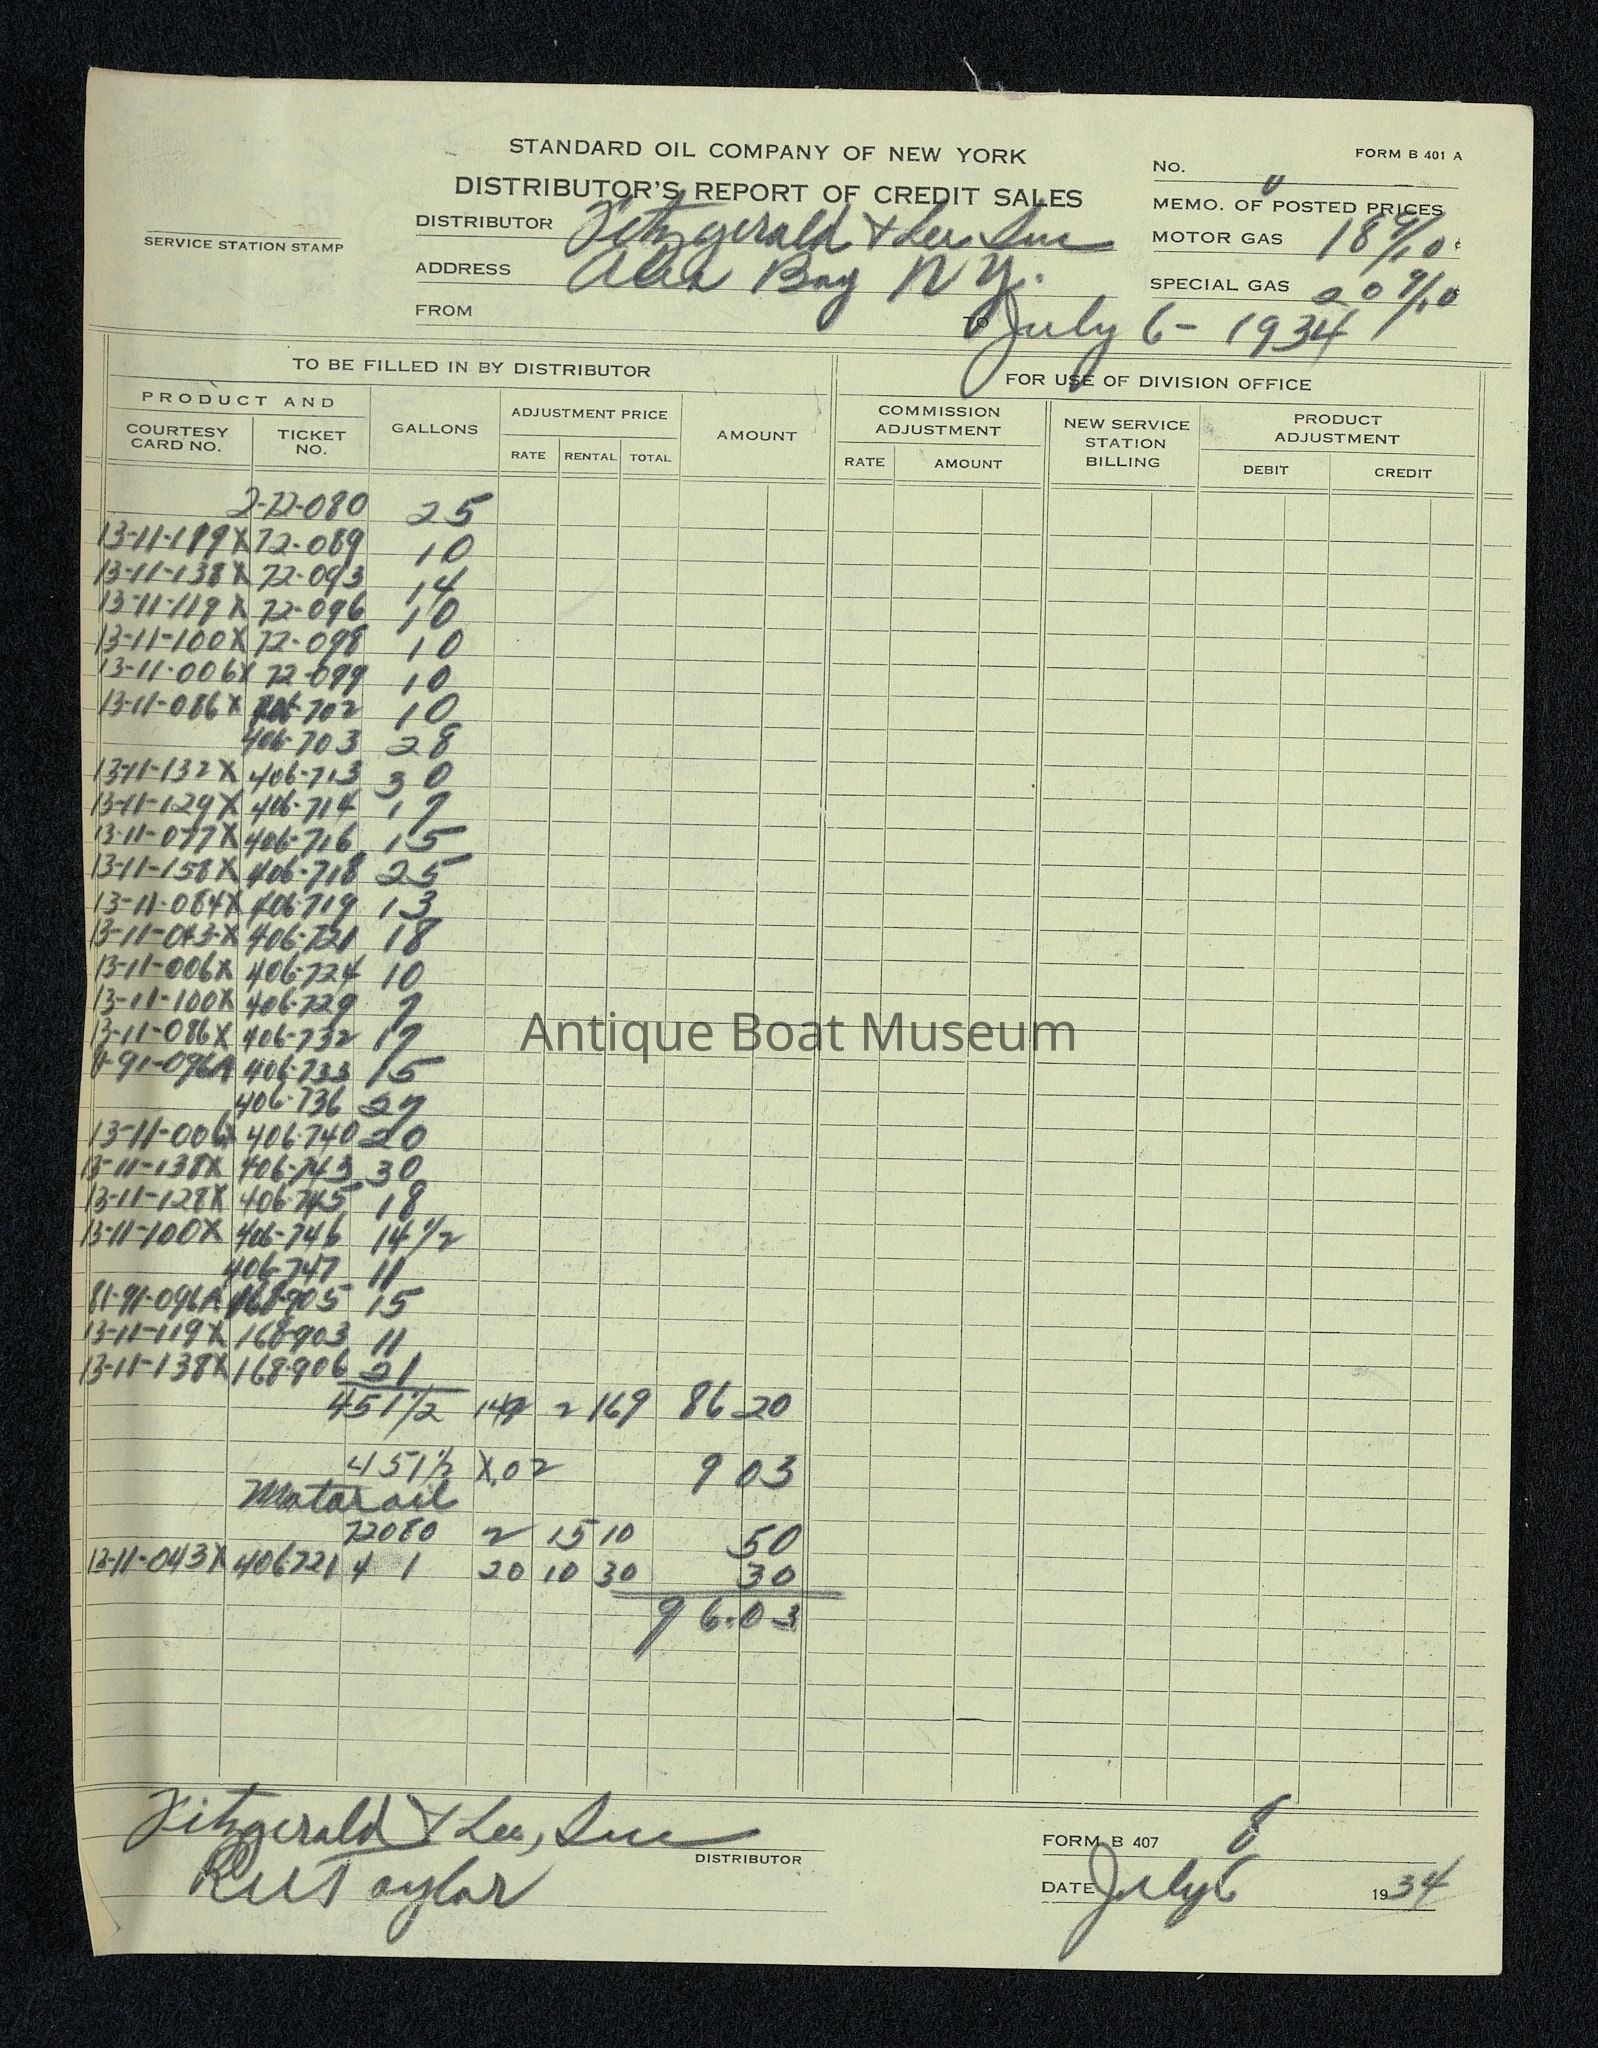 STANDARD OIL COMPANY OF NEW YORK
DISTRIBUTOR'S REPORT OF CREDIT SALES
FORM B 401 A
NO.
MEMO. OF POSTED PRICES
MOTOR GAS 18 9/10 ¢
SPECIAL GAS 20 9/10
SERVICE STATION STAMP
DISTRIBUTOR Fitzgerald & Lee, Inc
ADDRESS Alex Bay N.Y.
FROM TO July 6 - 1934
TO BE FILLED IN BY DISTRIBUTOR
FOR USE OF DIVISION OFFICE
PRODUCT AND
COURTESY CARD NO. TICKET NO. GALLONS ADJUSTMENT PRICE RATE RENTAL TOTAL AMOUNT
COMMISSION ADJUSTMENT RATE AMOUNT NEW SERVICE STATION BILLING PRODUCT ADJUSTMENT DEBIT CREDIT
72-080 25
13-11-199X 72-089 10
13-11-138X 72-093 14
13-11-119X 72-096 10
13-11-100X 72-098 10
13-11-006X 72-099 10
13-11-086X 406-702 10
406-703 28
13-11-132X 406-713 30
13-11-129X 406-714 17
13-11-077X 406-716 15
13-11-158X 406-718 25
13-11-084X 406-719 13
13-11-043-X 406-721 18
13-11-006X 406-724 10
13-11-100X 406-729 7
13-11-086X 406-732 17
8-91-096A 406-733 15
406-736 27
13-11-006X 406-740 20
13-11-138X 406-743 30
13-11-128X 406-745 18
13-11-100X 406-746 14 1/2
406-747 11
81-91-096A 168-905 15
13-11-119X 168-903 11
13-11-138X 168-906 21
451 1/2 149 2 169 86 20
451 1/2 X.02 9 03
Motor oil
72080 2 15 10 50
13-11-043X 406721 4 1 20 10 30 30
96.03
Antique Boat Museum
Fitzgerald & Lee, Inc
DISTRIBUTOR
Taylor
FORM B 407
DATE July 6 1934